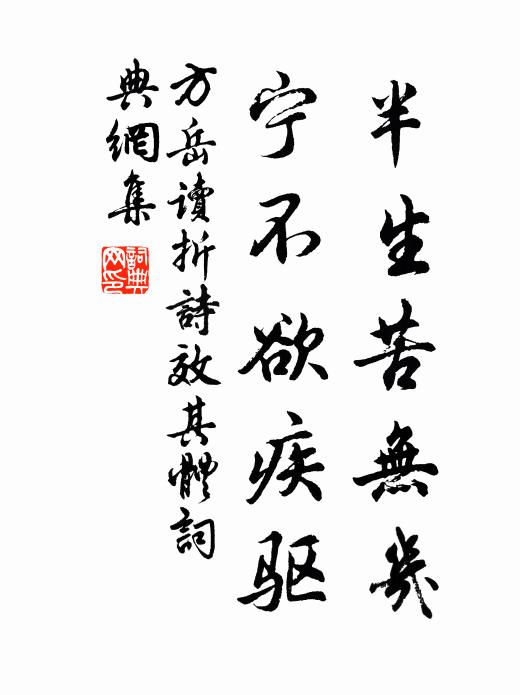 半生苦無幾
宁不欲疾驱
方岳讀折詩效其體詞
典網集
詞典
网印